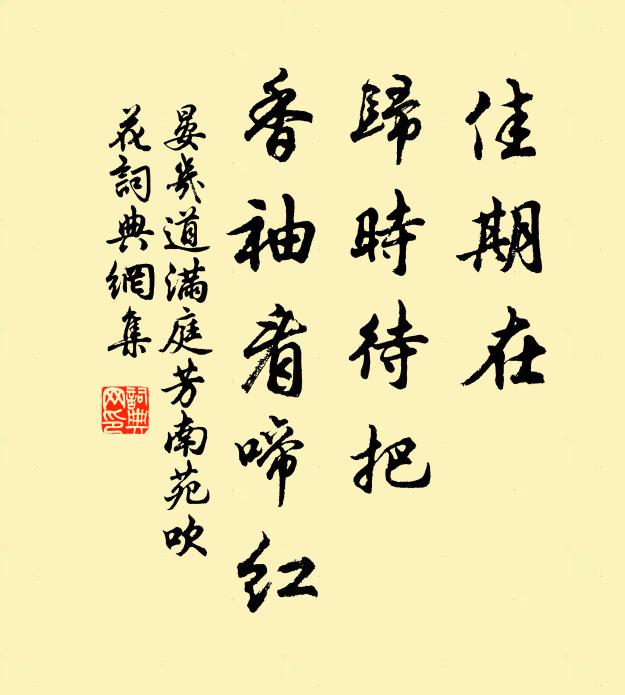 佳期在
歸時待把
香袖看啼紅
晏幾道滿庭芳南苑吹
花詞典網集
詞典
网印